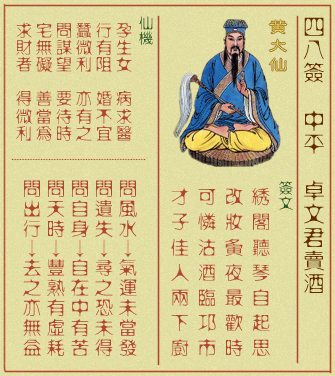 四八簽 中平 卓文君賣酒
黃大仙
簽文
繡閣聽琴自起思
改妝夤夜最歡時
可憐沽酒臨邛市
才子佳人兩下廚
仙機
孕生女 病求醫
行有阻 婚不宜
蠶微利 亦有之
問謀望 要待時
宅無礙 善當為
求財者 得微利
問風水→氣運未當發
問遺失→尋之恐未得
問自身→自在中有苦
問天時→豐熟有虛耗
問出行→去之亦無益